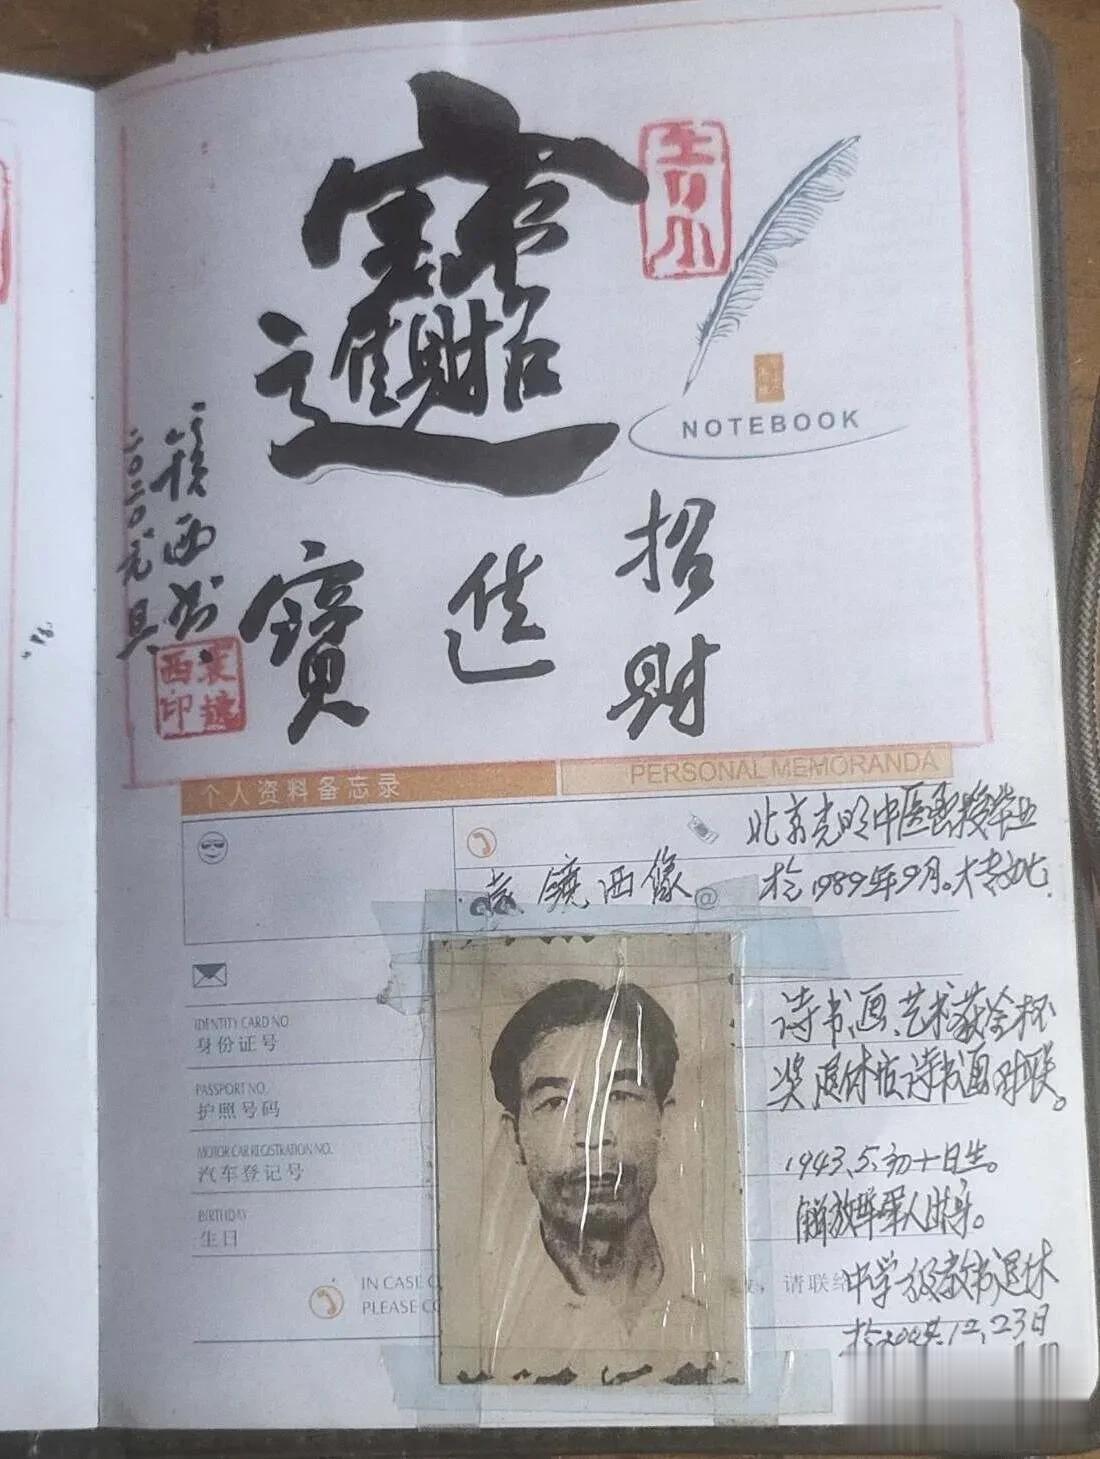 招財進寶
NOTEBOOK
招
財
進
寶
二〇二〇元具
镜西书
西印
个人资料备忘录
PERSONAL MEMORANDA
北京光明中医函授毕业
于1989年9月。大专文化.
镜西像
@
诗、书、画、艺术获金杯
奖退休后诗书画对联。
1943、5、初十日生。
解放军军人出身。
中学高级教师退休
于2004.12、23日
IDENTITY CARD NO.
身份证号
PASSPORT NO.
护照号码
MOTOR CAR REGISTRATION NO.
汽车登记号
BIRTHDAY
生日
IN CASE
，请联络
PLEASE CO